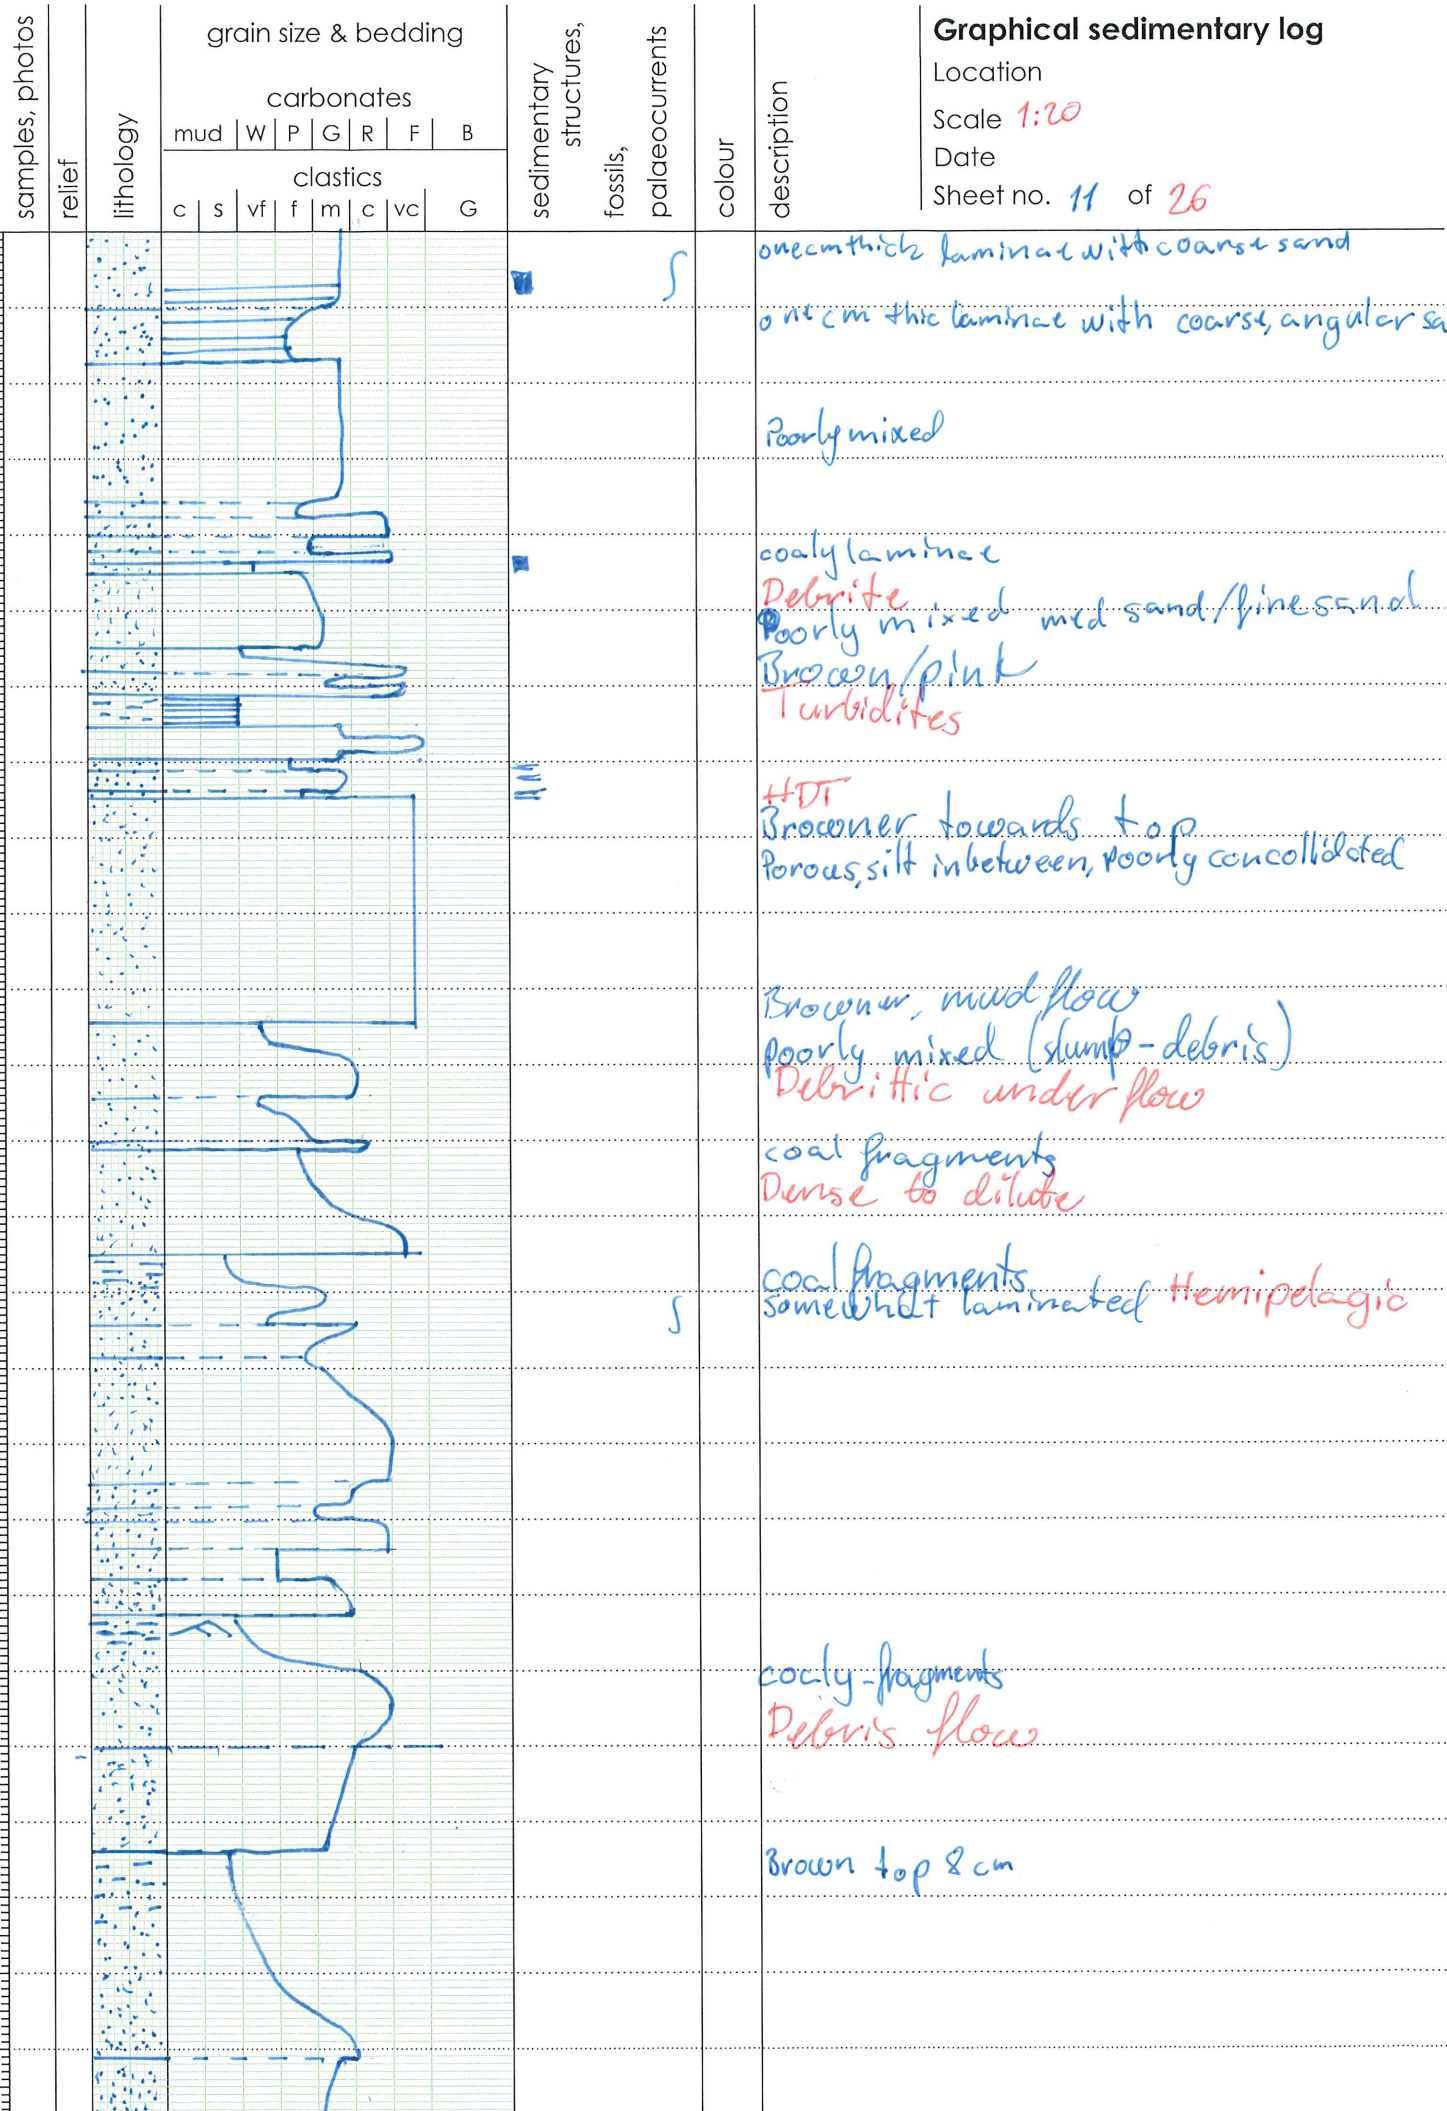 samples, photos
relief
lithology
grain size & bedding
carbonates
mud W P G R F B
clastics
c s vf f m c vc G
sedimentary
structures,
fossils,
palaeocurrents
colour
description
Graphical sedimentary log
Location
Scale 1:20
Date
Sheet no. 11 of 26
one cm thick laminae with coarse sand
one cm thic laminae with coarse, angular sa
Poorly mixed
coaly laminae
Debrite
Poorly mixed med sand/fine sand
Brown/pink
Turbidites
HDT
Browner towards top
Porous, silt inbetween, poorly concollidated
Browner, mud flow
poorly mixed (slump-debris)
Debrittic under flow
coal fragments
Dense to dilute
coal fragments
somewhat laminated Hemipelagic
coaly-fragments
Debris flow
Brown top 8 cm